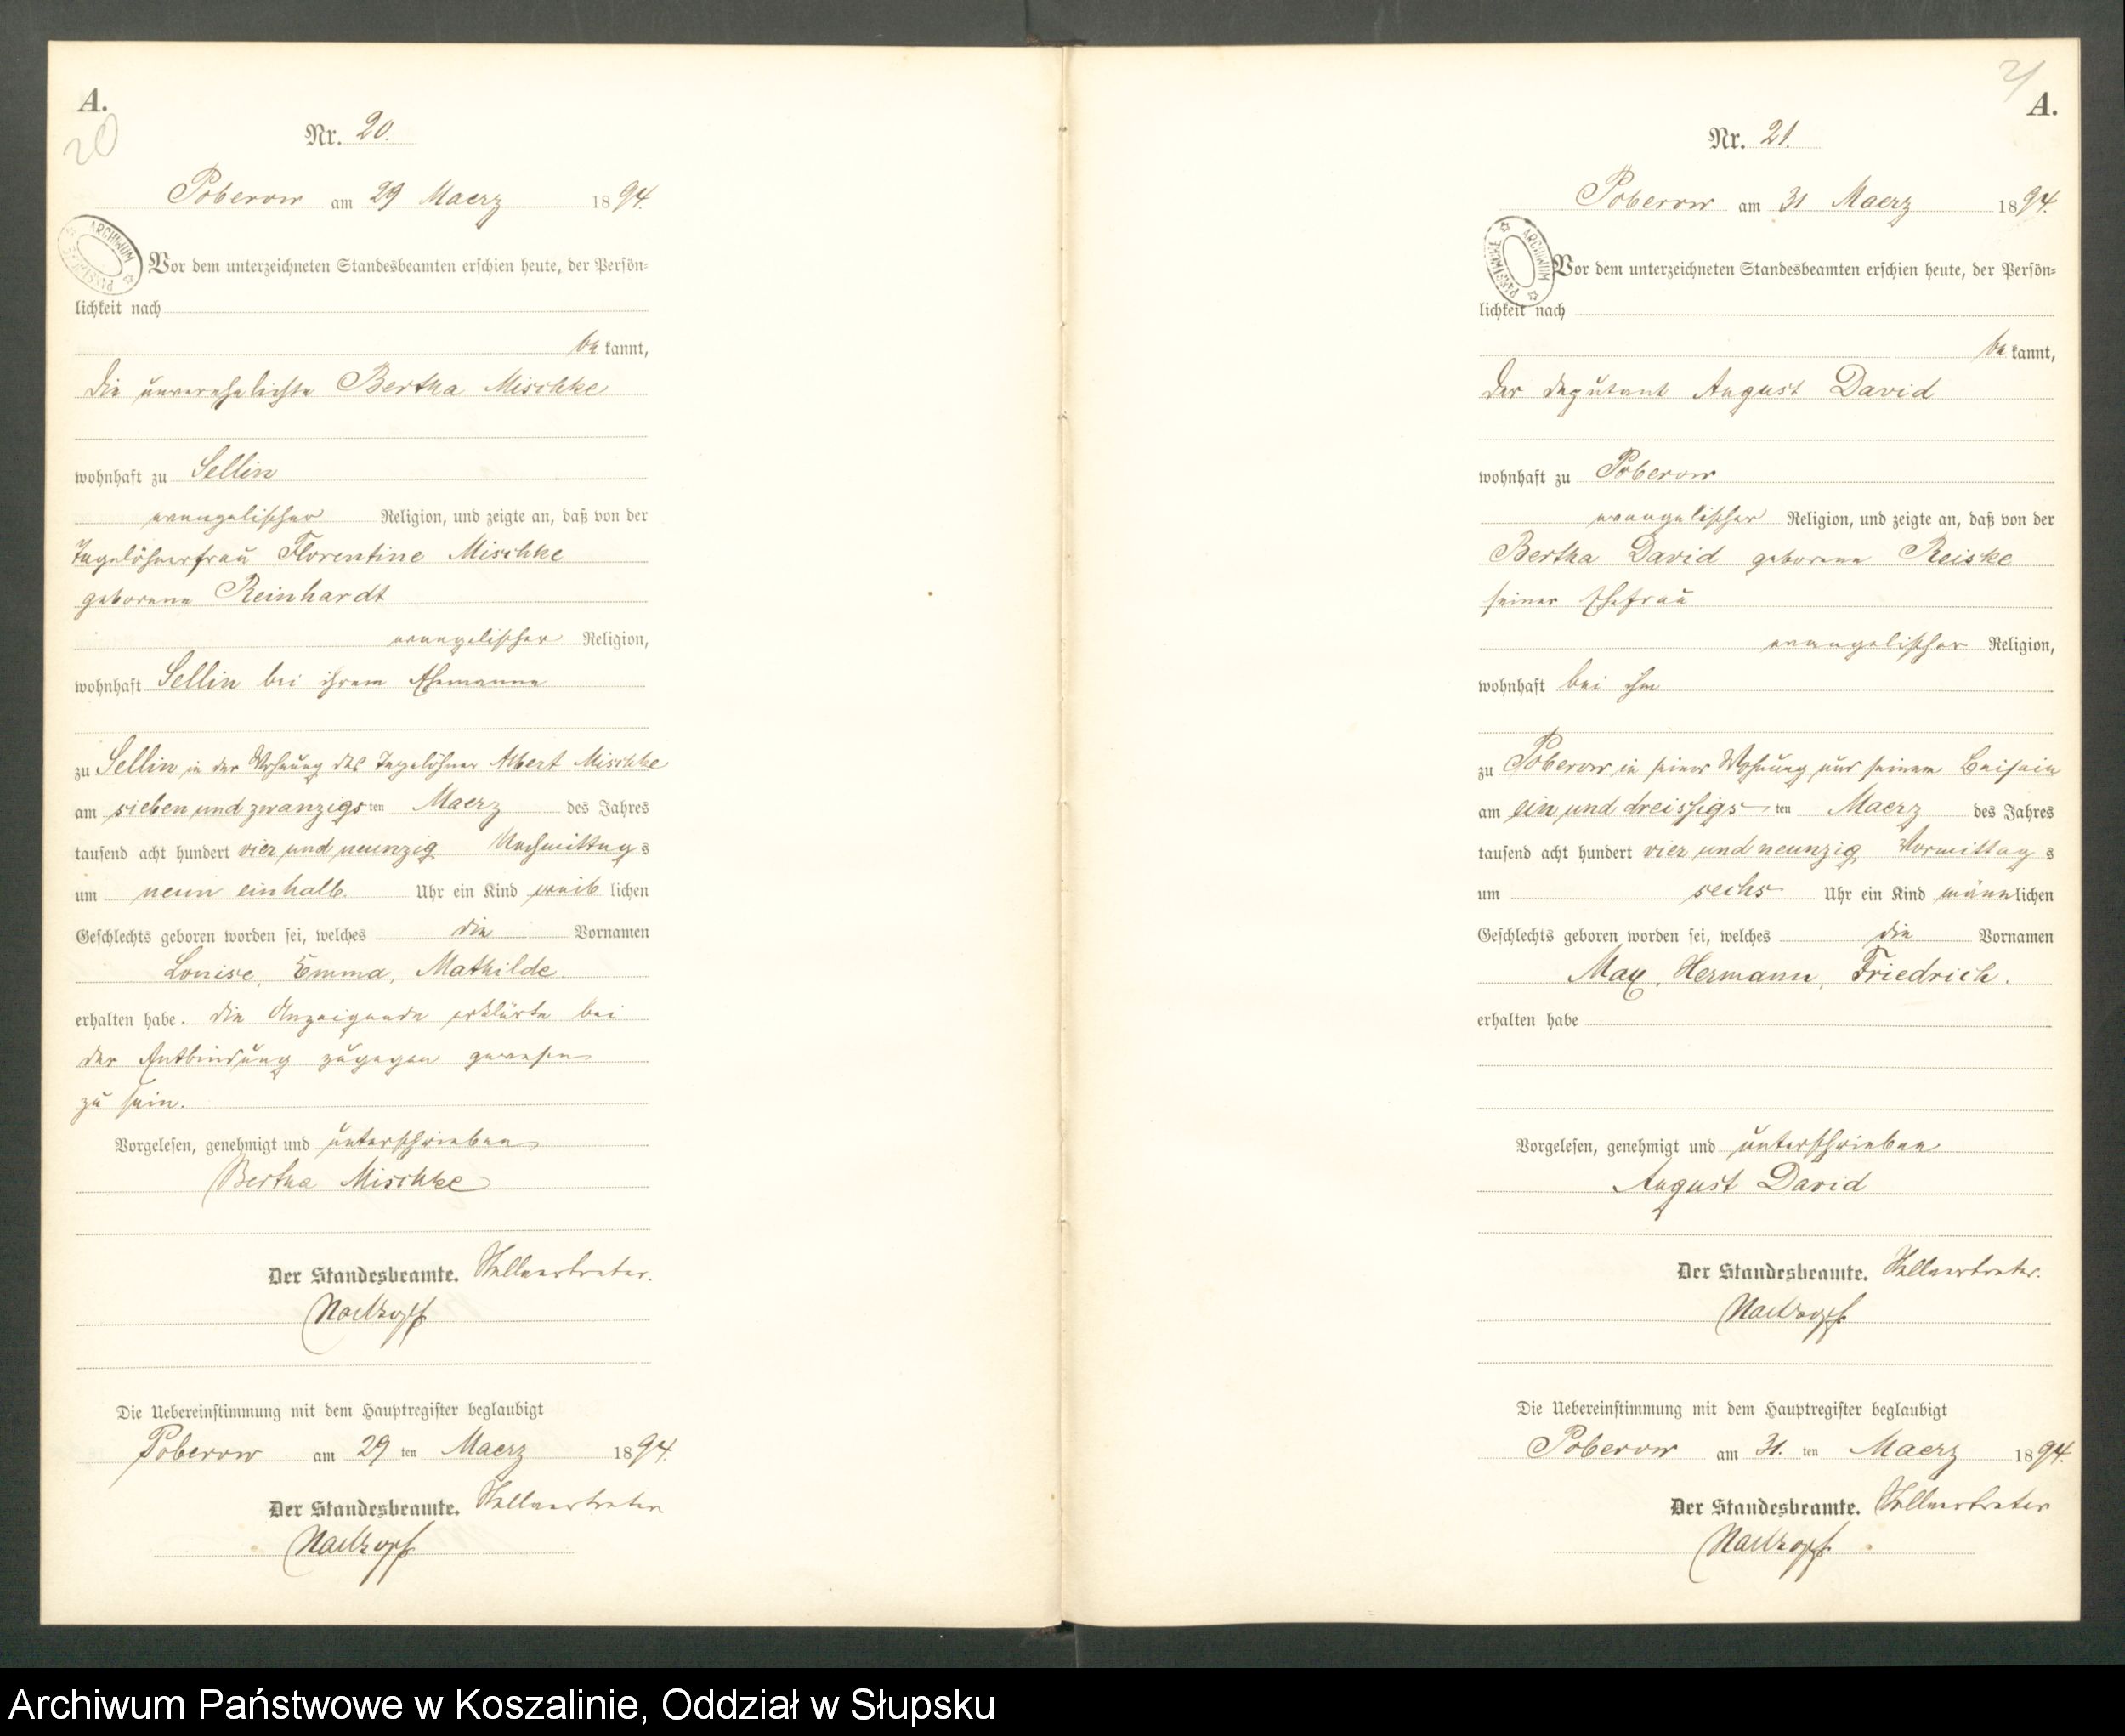 A.
20
Nr. 20.
Poberow am 29 Maerz 1894.
ARCHIWUM PAŃSTWOWE
Vor dem unterzeichneten Standesbeamten erschien heute, der Persön-
lichkeit nach
be kannt,
die unverehelichte Bertha Mischke
wohnhaft zu Sellin
evangelischer Religion, und zeigte an, daß von der
Tagelöhnerfrau Florentine Mischke
geborene Reinhardt
evangelischer Religion,
wohnhaft Sellin bei ihrem Ehemanne
zu Sellin in der Wohnung des Tagelöhner Albert Mischke
am sieben und zwanzigs ten Maerz des Jahres
tausend acht hundert vier und neunzig Nachmittag s
um neun einhalb Uhr ein Kind weib lichen
Geschlechts geboren worden sei, welches die Vornamen
Louise, Emma, Mathilde
erhalten habe. Die Anzeigende erklärte bei
der Entbindung zugegen gewesen
zu sein.
Vorgelesen, genehmigt und unterschrieben
Bertha Mischke
Der Standesbeamte. Stellvertreter.
Die Uebereinstimmung mit dem Hauptregister beglaubigt
Poberow am 29 ten Maerz 1894.
Der Standesbeamte. Stellvertreter
21
A.
Nr. 21.
Poberow am 31 Maerz 1894.
ARCHIWUM PAŃSTWOWE
Vor dem unterzeichneten Standesbeamten erschien heute, der Persön-
lichkeit nach
be kannt,
der Deputant August David
wohnhaft zu Poberow
evangelischer Religion, und zeigte an, daß von der
Bertha David geborene Reiske
seiner Ehefrau
evangelischer Religion,
wohnhaft bei ihm
zu Poberow in seiner Wohnung und seinem Beisein
am ein und dreissigs ten Maerz des Jahres
tausend acht hundert vier und neunzig Vormittag s
um sechs Uhr ein Kind männ lichen
Geschlechts geboren worden sei, welches die Vornamen
Max, Hermann, Friedrich.
erhalten habe
Vorgelesen, genehmigt und unterschrieben
August David
Der Standesbeamte. Stellvertreter.
Die Uebereinstimmung mit dem Hauptregister beglaubigt
Poberow am 31. ten Maerz 1894.
Der Standesbeamte. Stellvertreter
Archiwum Państwowe w Koszalinie, Oddział w Słupsku